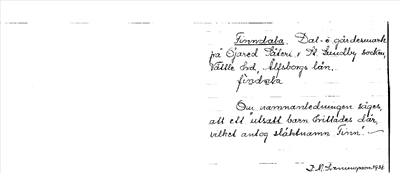 Finndala. Dal- o. gärdesmark
på Sjared Säteri, St. Lundby socken,
Vättle hd, Älfsborgs län.
findala
Om namnanledningen säges,
att ett "utsatt barn hittades där,
vilket antog släktnamn Finn".
1938